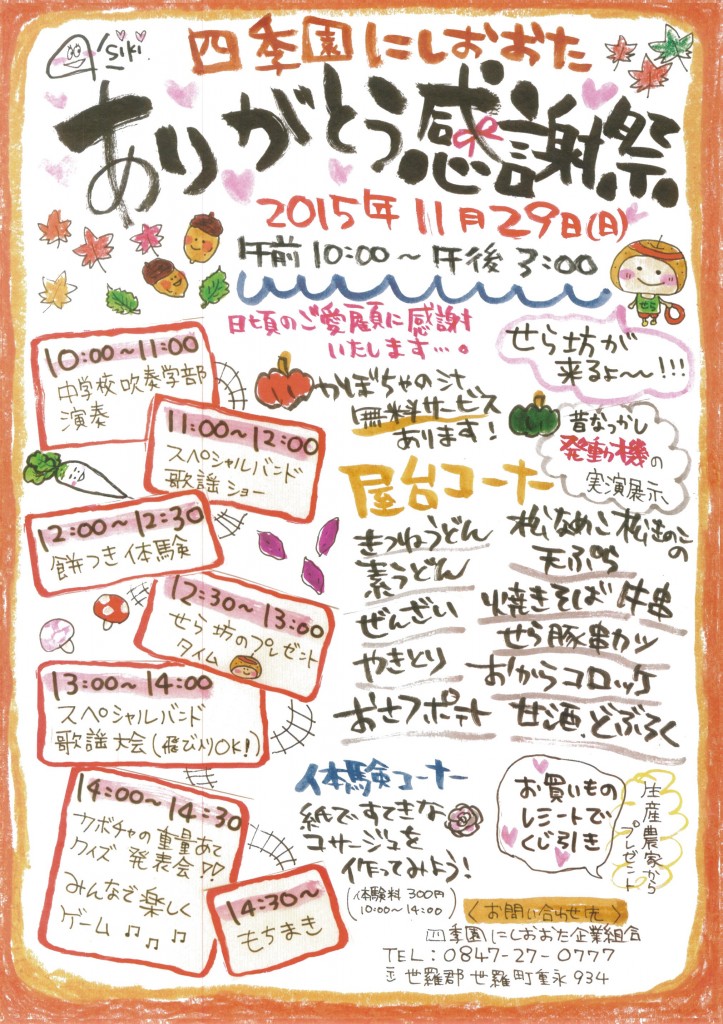 siki
四季園にしおおた
ありがとう感謝祭
2015年11月29日(日)
午前10:00～午後3:00
日頃のご愛顧に感謝
いたします…。
せら
せら坊が
来るよ～～!!!
かぼちゃの汁
無料サービス
あります!
昔なつかし
発動機の
実演展示
10:00～11:00
中学校吹奏学部
演奏
11:00～12:00
スペシャルバンド
歌謡ショー
12:00～12:30
餅つき体験
12:30～13:00
せら坊のプレゼント
タイム
13:00～14:00
スペシャルバンド
歌謡大会(飛び入りOK!)
14:00～14:30
カボチャの重量あて
クイズ発表会!!
みんなで楽しく
ゲーム♫♫♫
14:30～
もちまき
屋台コーナー
きつねうどん
素うどん
ぜんざい
やきとり
おさつポテト
松なめこ松きのこの
天ぷら
焼きそば 牛串
せら豚串カツ
おからコロッケ
甘酒、どぶろく
体験コーナー
紙ですてきな
コサージュを
作ってみよう!
(体験料300円
10:00～14:00)
お買いもの
レシートで
くじ引き
生産農家から
プレゼント
〈お問い合わせ先〉
四季園にしおおた企業組合
TEL:0847-27-0777
世羅郡世羅町重永934